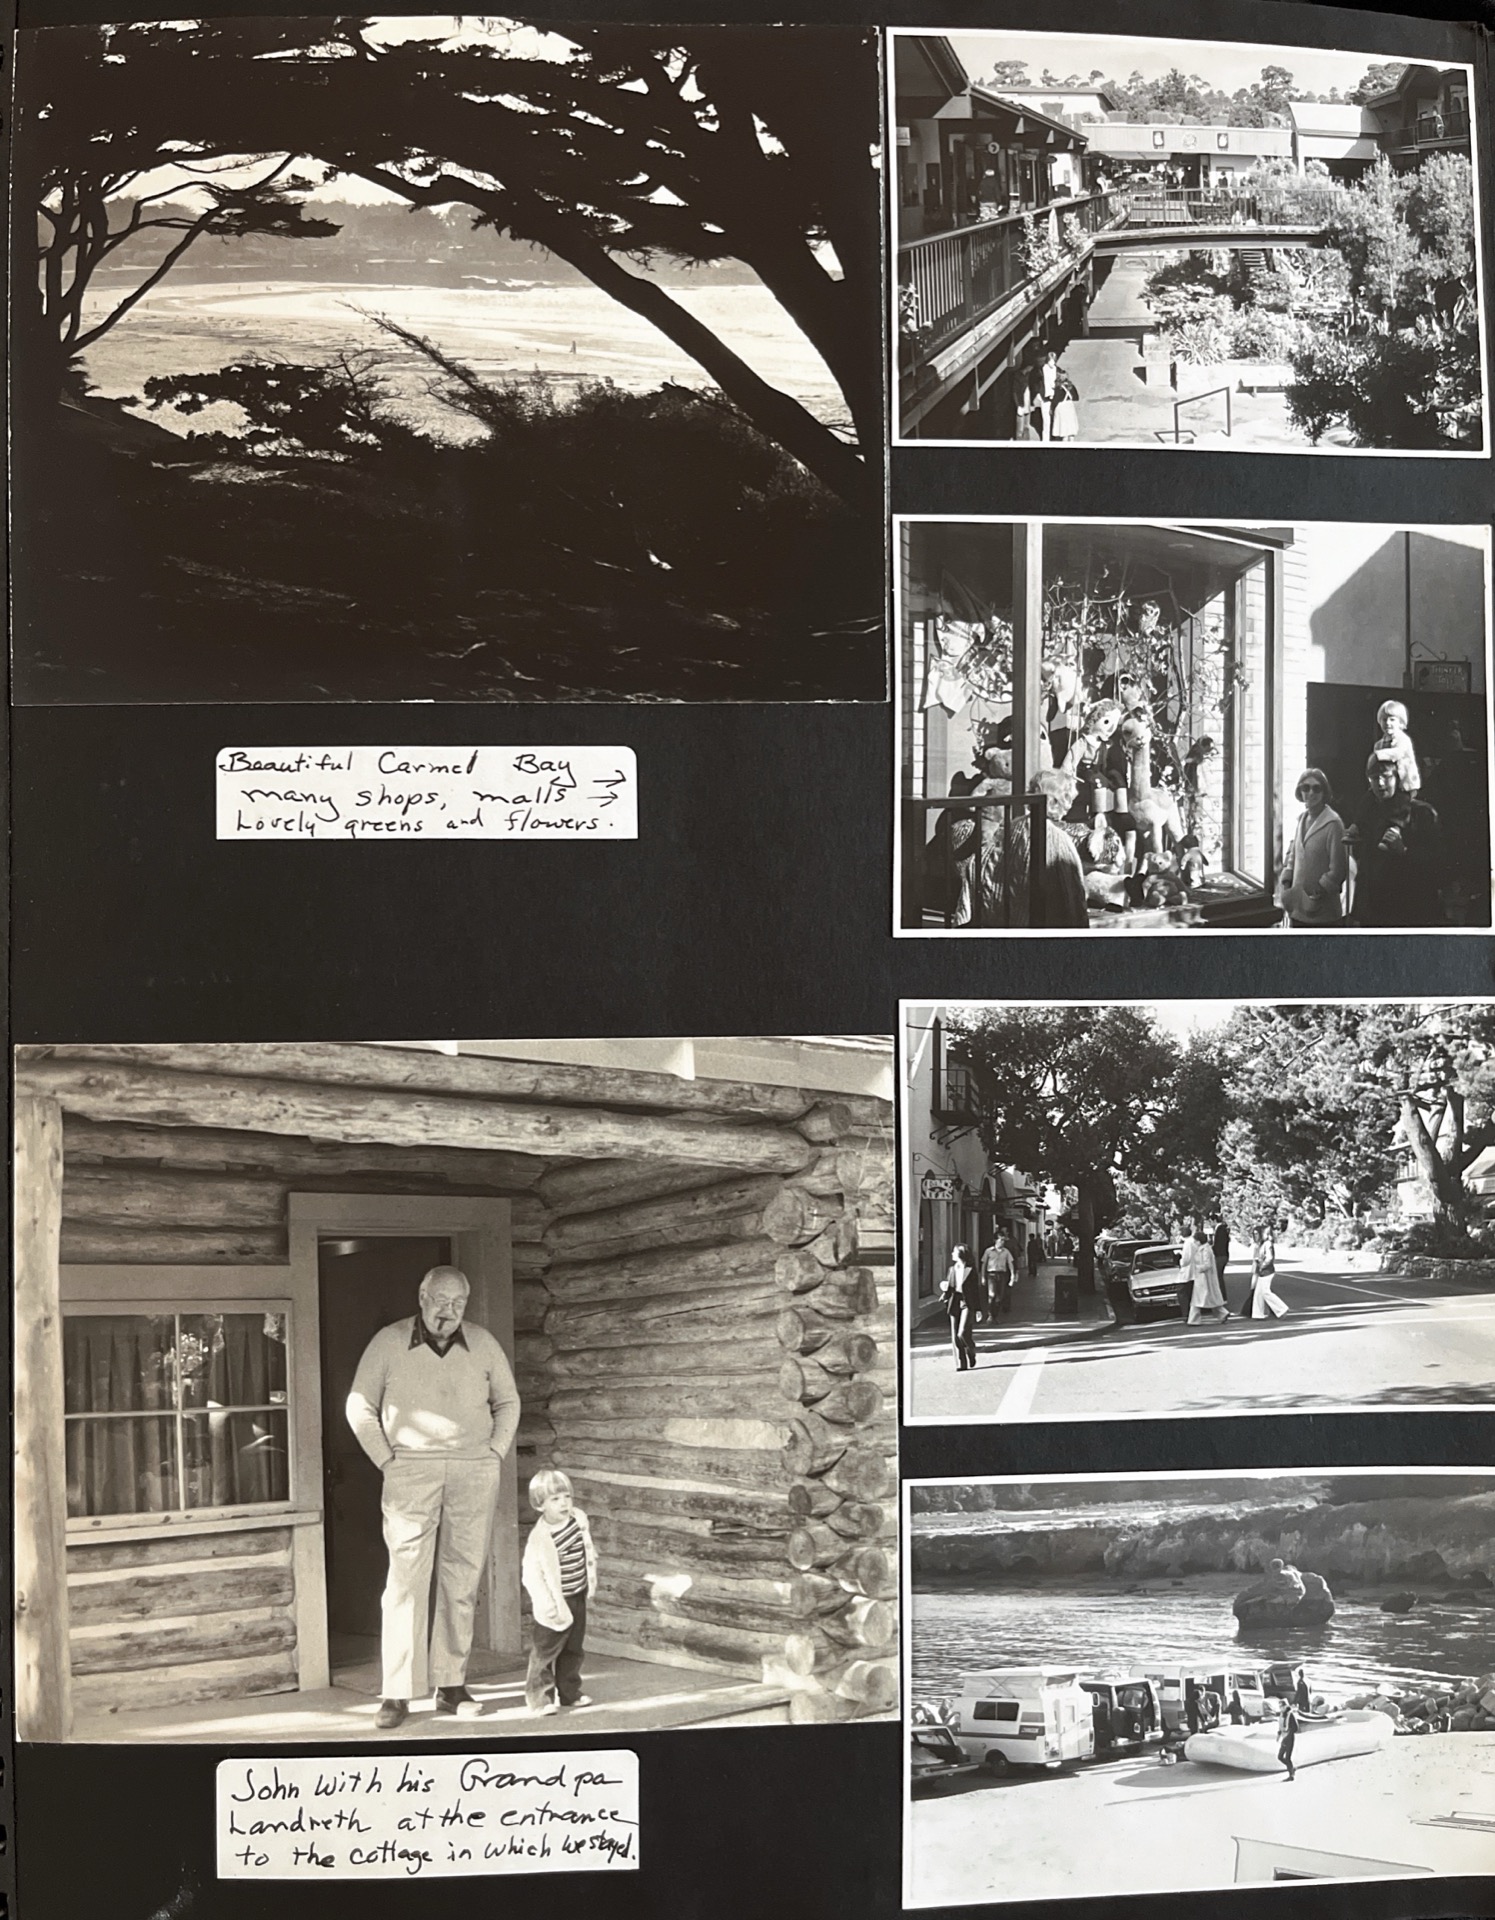 Beautiful Carmel Bay →
many shops, malls →
Lovely greens and flowers.
John with his Grandpa
Landreth at the entrance
to the cottage in which we stayed.